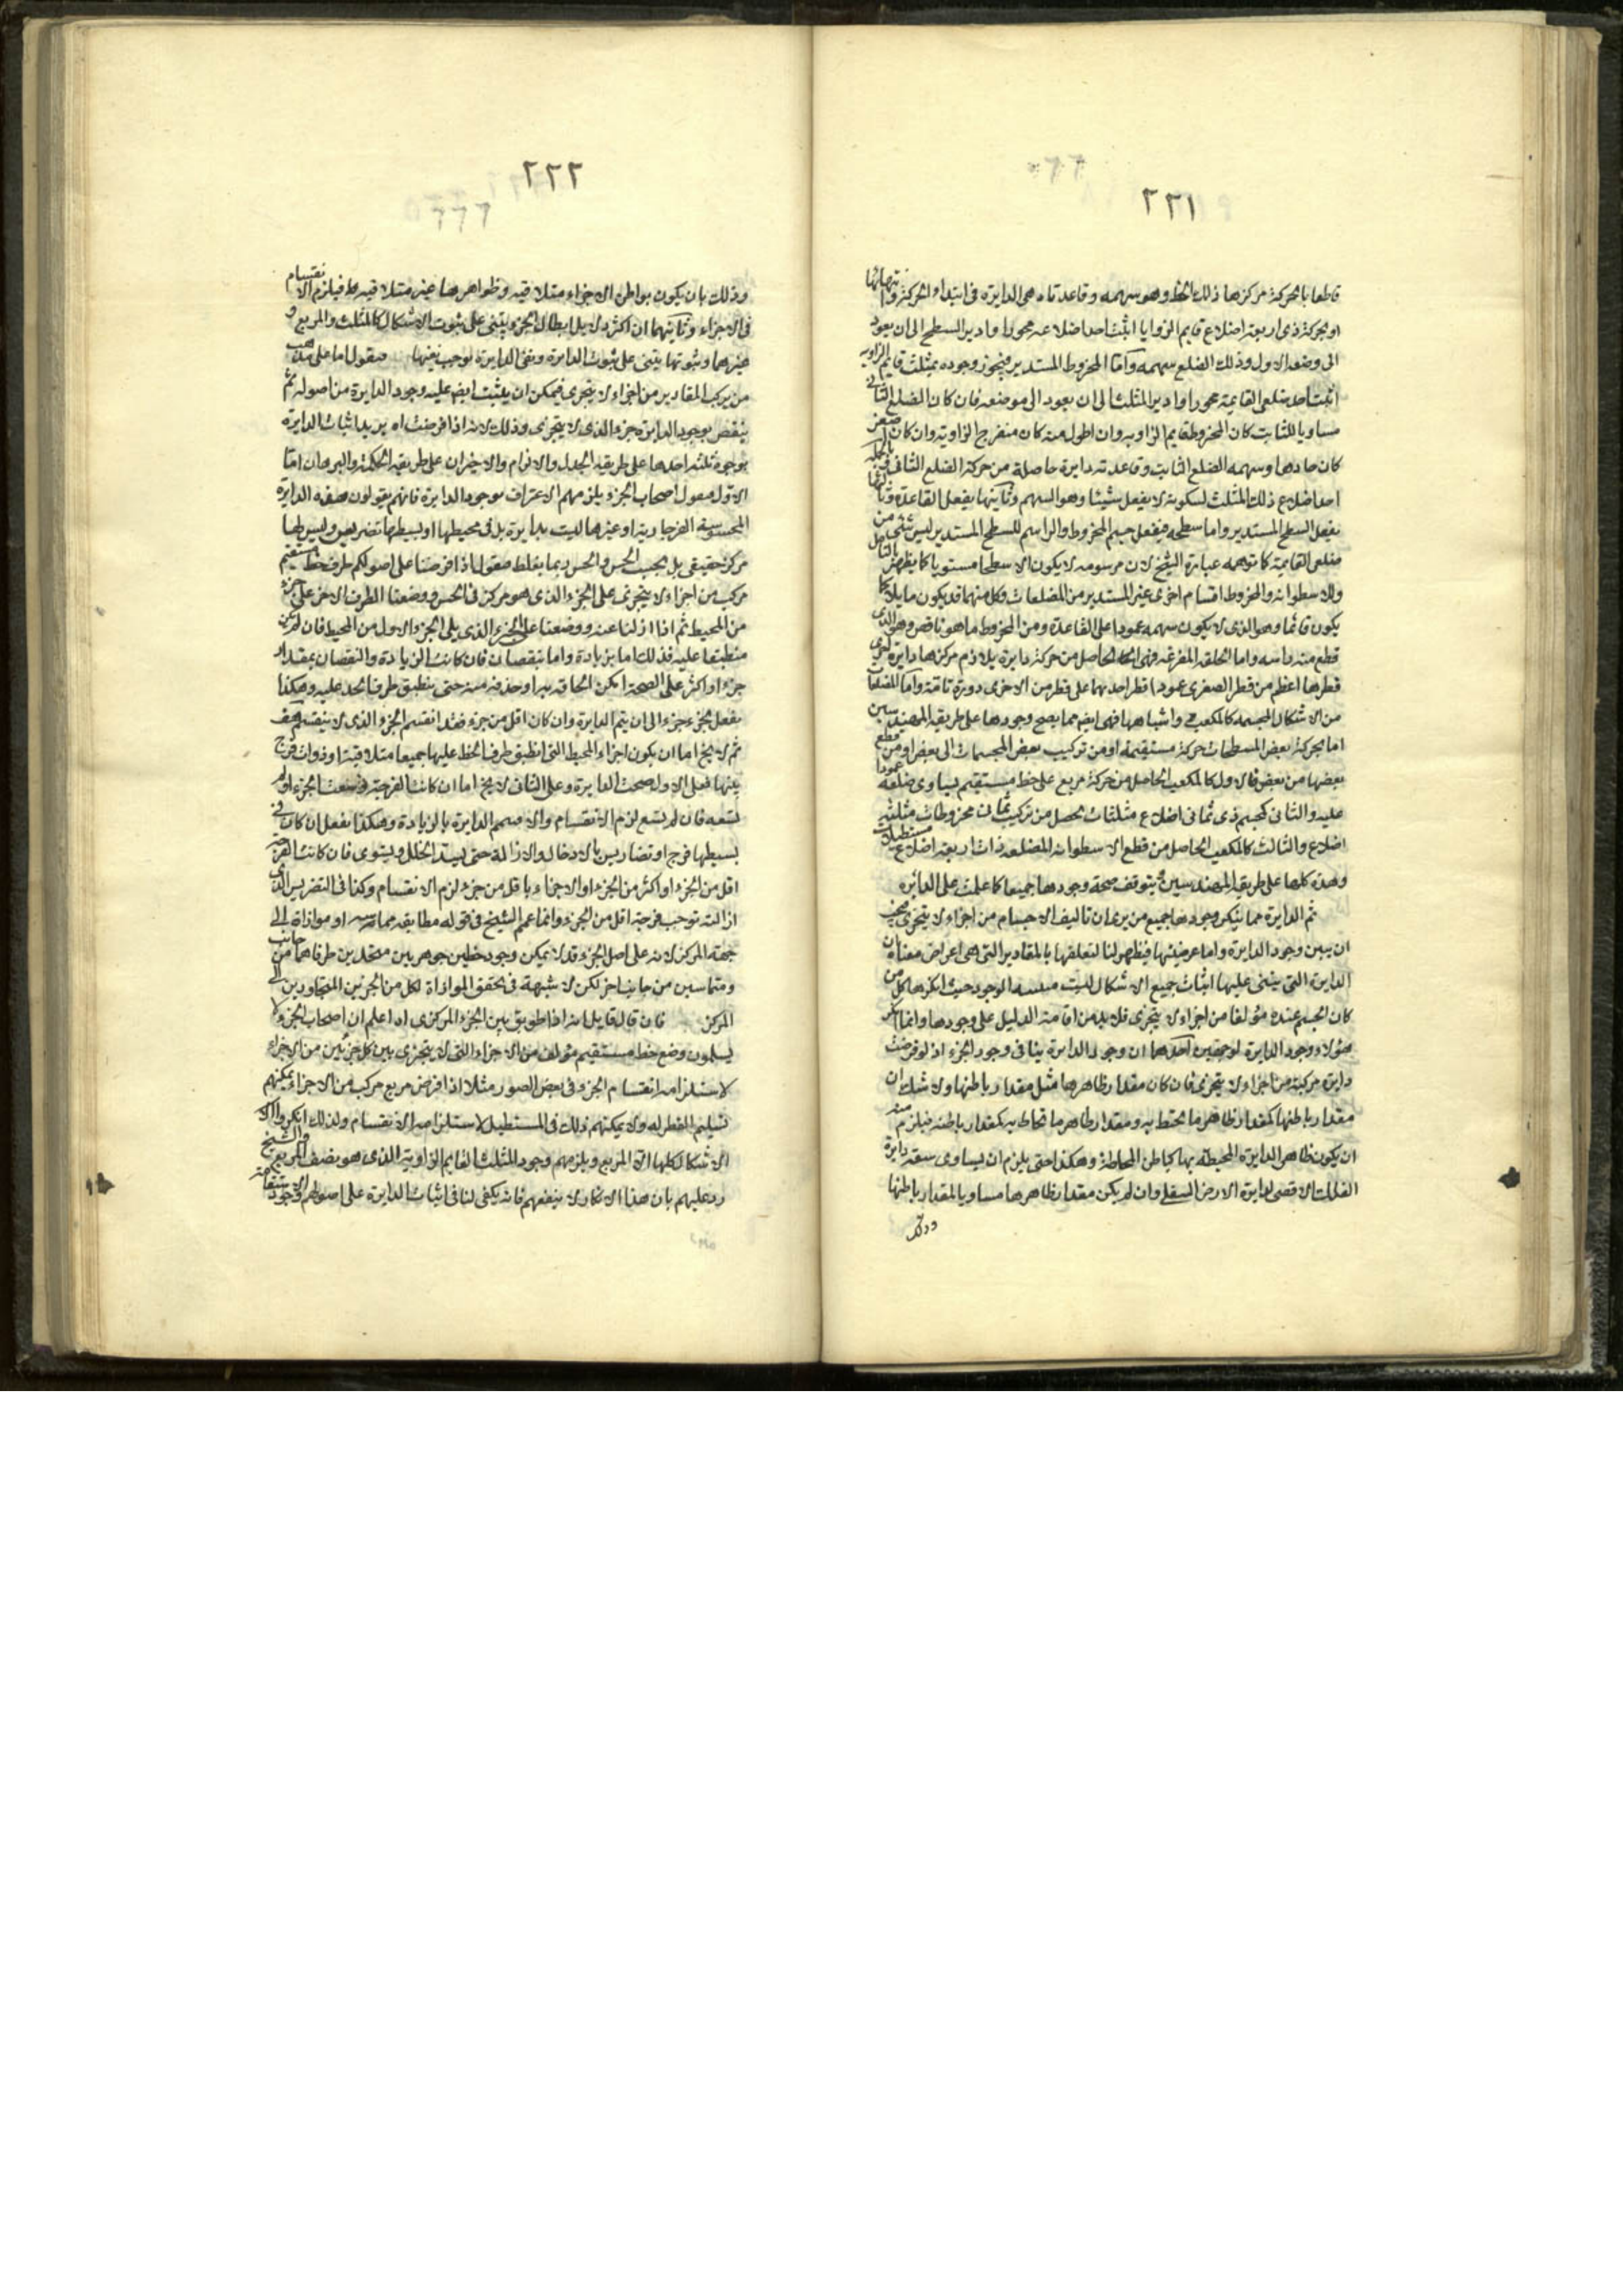 ٢٢١
قاطعا بالحركة مركزها ذلك الخط وهو سهمه وقاعدتاه هى الدايرة فى ابتداء الحركة وانتهائها
او بحركة ذى اربعة اضلاع قايم الزوايا اثبت احد اضلاعه محورا وادير السطح الى ان يعود
الى وضعه الاول وذلك الضلع سهمه واما المخروط المستدير فنجوز وجوده بمثلث قايم الزاوية
اثبت احد ضلعى القايمة محورا وادير المثلث الى ان يعود الى موضعه فان كان الضلع الثانى
مساويا للثابت كان المخروط قايم الزاوية وان اطول منه كان منفرج الزاوية وان كان اصغر
كان حادها وسهمه الضلع الثابت وقاعدته دايرة حاصلة من حركة الضلع الثانى
احد اضلاع ذلك المثلث لسكونه لا يفعل شيئا وهو السهم وثانيها يفعل القاعدة وثالثها
يفعل السطح المستدير واما سطحه فيفعل جسم المخروط والراسم للسطح المستدير ليس شئ من
ضلعى القايمة كما توهمه عبارة الشيخ لان مرسومه لا يكون الا سطحا مستويا كما يظهر بالتامل
وللاسطوانة والمخروط اقسام اخرى غير المستدير من المضلعات وكل منهما قد يكون مايلا كما
يكون قائما وهو الذى لا يكون سهمه عمودا على القاعدة ومن المخروط ما هو ناقص وهو الذى
قطع منه راسه واما الحلقة المفرغة فهى الحاصل من حركة دايرة يلازم مركزها دايرة اخرى
قطرها اعظم من قطر الصغرى عمودا قطر احديهما على قطر من الاخرى دورة تامة واما المضلعات
من الاشكال المجسمة كالمكعب واشباهها فهى ايضا مما يصح وجودها على طريقة المهندسين
اما بحركة بعض المسطحات حركة مستقيمة او من تركيب بعض المجسمات الى بعض او من قطع
بعضها من بعض فالاول كالمكعب الحاصل من حركة مربع على خط مستقيم يساوى ضلعه عمودا
عليه والثانى كجسم ذى ثمانى اضلاع مثلثات يحصل من تركيب ثمان مخروطات مثلثية
اضلاع والثالث كالمكعب الحاصل من قطع الاسطوانة المضلعة ذات اربعة اضلاع مستطيلات
وهذه كلها على طريقة المهندسين يتوقف صحة وجودها جميعا كما علمت على الدائره
ثم الدايرة مما ينكر وجودها جميع من يرى ان تاليف الاجسام من اجزاء لا يتجزى فيجب
ان يبين وجود الدايرة واما عرضيتها فيظهر لنا لتعلقها بالمقادير التى هى اعراض معناه ان
الدايرة التى يبتنى عليها اثبات جميع الاشكال ليست الوجود حيث انكرها كل من
كان الجسم عنده مؤلفا من اجزاء لا يتجزى فلا بد من اقامة الدليل على وجودها وانما انكر
هؤلاء وجود الدايرة لوجهين احدهما ان وجود الدايرة ينافى وجود الجزء اذ لو فرضت
دايرة مركبة من اجزاء لا يتجزى فان كان مقدار ظاهرها مثل مقدار باطنها ولا شك ان
مقدار باطنها كمقدار ظاهر ما يحيط به ومقدار ظاهر ما تحاط به كمقدار باطنه فيلزم منه
ان يكون ظاهر الدايرة المحيطة بها كباطن المحاطة وهكذا حتى يلزم ان يساوى سعة دايرة
الفلك الاقصى لدايرة الارض السفلى وان لم يكن مقدار ظاهرها مساويا لمقدار باطنها
وذلك
٢٢٢
وذلك بان يكون بواطن الاجزاء متلاقية وظواهرها غير متلاقية فيلزم الانقسام
فى الاجزاء وثانيهما ان اكثر دلايل ابطال الجزء يبتنى على ثبوت الاشكال كالمثلث والمربع و
غيرهما وثبوتها يبتنى على ثبوت الدايرة ونفى الدايرة يوجب نفيها فنقول اما على مذهب
من يركب المقادير من اجزاء لا يتجزى فيمكن ان يثبت ايضا عليه وجود الدايرة من اصوله ثم
ينقض بوجود الدايرة جزء الذى لا يتجزى وذلك لانه اذا فرضت اه يريد اثبات الدايرة
بوجوه ثلثة احدها على طريقة الجدل والالزام والاخيران على طريقة الحكمة والبرهان اما
الاول فنقول اصحاب الجزء يلزمهم الاعتراف بوجود الدايرة فانهم يقولون هذه الدايرة
المحسوسة الفرجارية او غيرها ليست بدايرة بل فى محيطها او بسيطها تضريس وليس لها
مركز حقيقى بل بحسب الحس والحس ربما يغلط فنقول اذا فرضنا على اصولكم طرف خط مستقيم
مركب من اجزاء لا يتجزى على الجزء الذى هو مركز فى الحس ووضعنا الطرف الاخر على جزء
من المحيط ثم اذا ازلنا عنه ووضعنا على الجزء الذى يلى الجزء الاول من المحيط فان لم يكن
منطبقا عليه فذلك اما بزيادة واما بنقصان فان كانت الزيادة والنقصان بمقدار
جزء او اكثر على الصحة امكن الحاقه به او حذفه منه حتى ينطبق طرف الخط عليه وهكذا
يفعل بجزء جزء الى ان يتم الدايرة وان كان اقل من جزء فقد انقسم الجزء الذى لا ينقسم هف
ثم لا يخ اما ان يكون اجزاء المحيط التى انطبق طرف الخط عليها جميعا متلاقية او ذوات فرج
بينها فعلى الاول صحت الدايرة وعلى الثانى لا يخ اما ان كانت الفرجة وسعت الجزء او لم
تسعه فان لم يسع لزم الانقسام والا تمم الدايرة بالزيادة وهكذا يفعل ان كان فى
بسيطها فرج او تضاريس بالادخال والازالة حتى يسد الخلل ويستوى فان كانت الفرجة
اقل من الجزء او اكثر من الجزء او الاجزاء باقل من جزء لزم الانقسام وكذا فى التضريس الذى
ازالته توجب فرجة اقل من الجزء وانما عمم الشيخ فى قوله مطابقة مماسة او موازاة الى
جهة المركز لانه على اصل الجزء قد لا يمكن وجود خطين جوهرين متحدين طرفاهما من جانب
ومتماسين من جانب اخر لكن لا شبهة فى تحقق الموازاة لكل من الجزئين المتجاورين الى
المركز فان قال قايل انه اذا طوبق بين الجزء المركزى اه اعلم ان اصحاب الجزء لا
يسلمون وضع خط مستقيم مؤلف من الاجزاء التى لا يتجزى بين كل جزئين من الاجزاء
لاستلزامه انقسام الجزء فى بعض الصور مثلا اذا فرض مربع مركب من الاجزاء يمكنهم
تسليم القطر له ولا يمكنهم ذلك فى المستطيل لاستلزامه الانقسام ولذلك انكروا
الاشكال كلها الا المربع ويلزمهم وجود المثلث القايم الزاوية الذى هو نصف المربع والشيخ
رد عليهم بان هذا الانكار لا ينفعهم فانه يكفى لنا فى اثبات الدايرة على اصولهم وجود الاستقامة